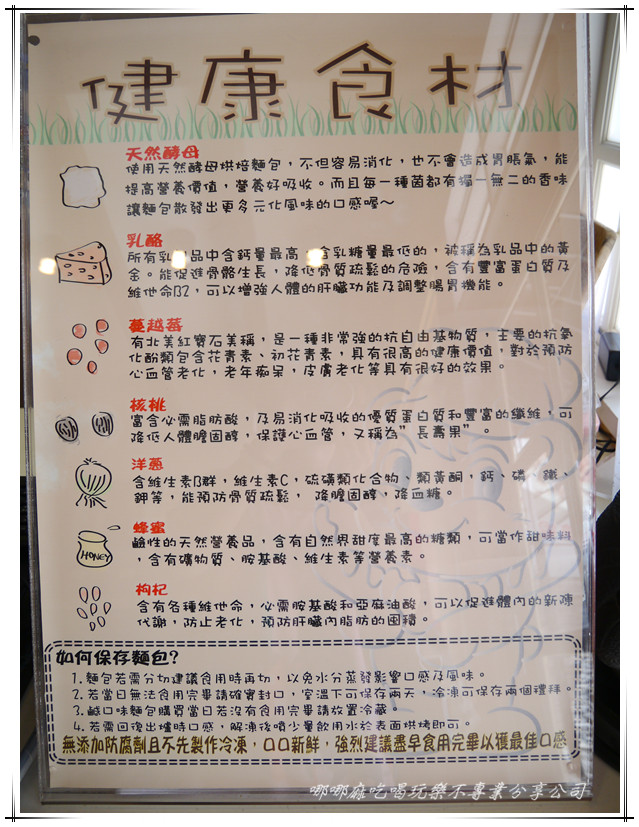 健康食材
天然酵母
使用天然酵母烘培麵包，不但容易消化，也不會造成胃脹氣，能
提高營養價值，營養好吸收。而且每一種菌都有獨一無二的香味
讓麵包散發出更多元化風味的口感喔～
乳酪
所有乳 品中含鈣量最高，含乳糖量最低的，被稱為乳品中的黃
金。能促進骨骼生長，降低骨質疏鬆的危險，含有豐富蛋白質及
維他命B2，可以增強人體的肝臟功能及調整腸胃機能。
蔓越莓
有北美紅寶石美稱，是一種非常強的抗自由基物質，主要的抗氧
化酚類包含花青素、初花青素，具有很高的健康價值，對於預防
心血管老化，老年痴呆，皮膚老化等具有很好的效果。
核桃
富含必需脂肪酸，及易消化吸收的優質蛋白質和豐富的纖維，可
降低人體膽固醇，保護心血管，又稱為”長壽果”。
洋蔥
含維生素B群，維生素C，硫磺類化合物、類黃酮，鈣、磷、鐵、
鉀等，能預防骨質疏鬆， 降膽固醇，降血糖。
蜂蜜
HONEY
鹼性的天然營養品，含有自然界甜度最高的糖類，可當作甜味料
，含有礦物質、胺基酸、維生素等營養素。
枸杞
含有各種維他命，必需胺基酸和亞麻油酸，可以促進體內的新陳
代謝，防止老化，預防肝臟內脂肪的囤積。
如何保存麵包?
1.麵包若需分切建議食用時再切，以免水分蒸發影響口感及風味。
2.若當日無法食用完畢請確實封口，室溫下可保存兩天，冷凍可保存兩個禮拜。
3.鹹口味麵包購買當日若沒有食用完畢請放置冷藏。
4.若需回復出爐時口感，解凍後噴少量飲用水於表面烘烤即可。
無添加防腐劑且不先製作冷凍，口口新鮮，強烈建議盡早食用完畢以獲最佳口感
嘟嘟麻吃喝玩樂不專業分享公司